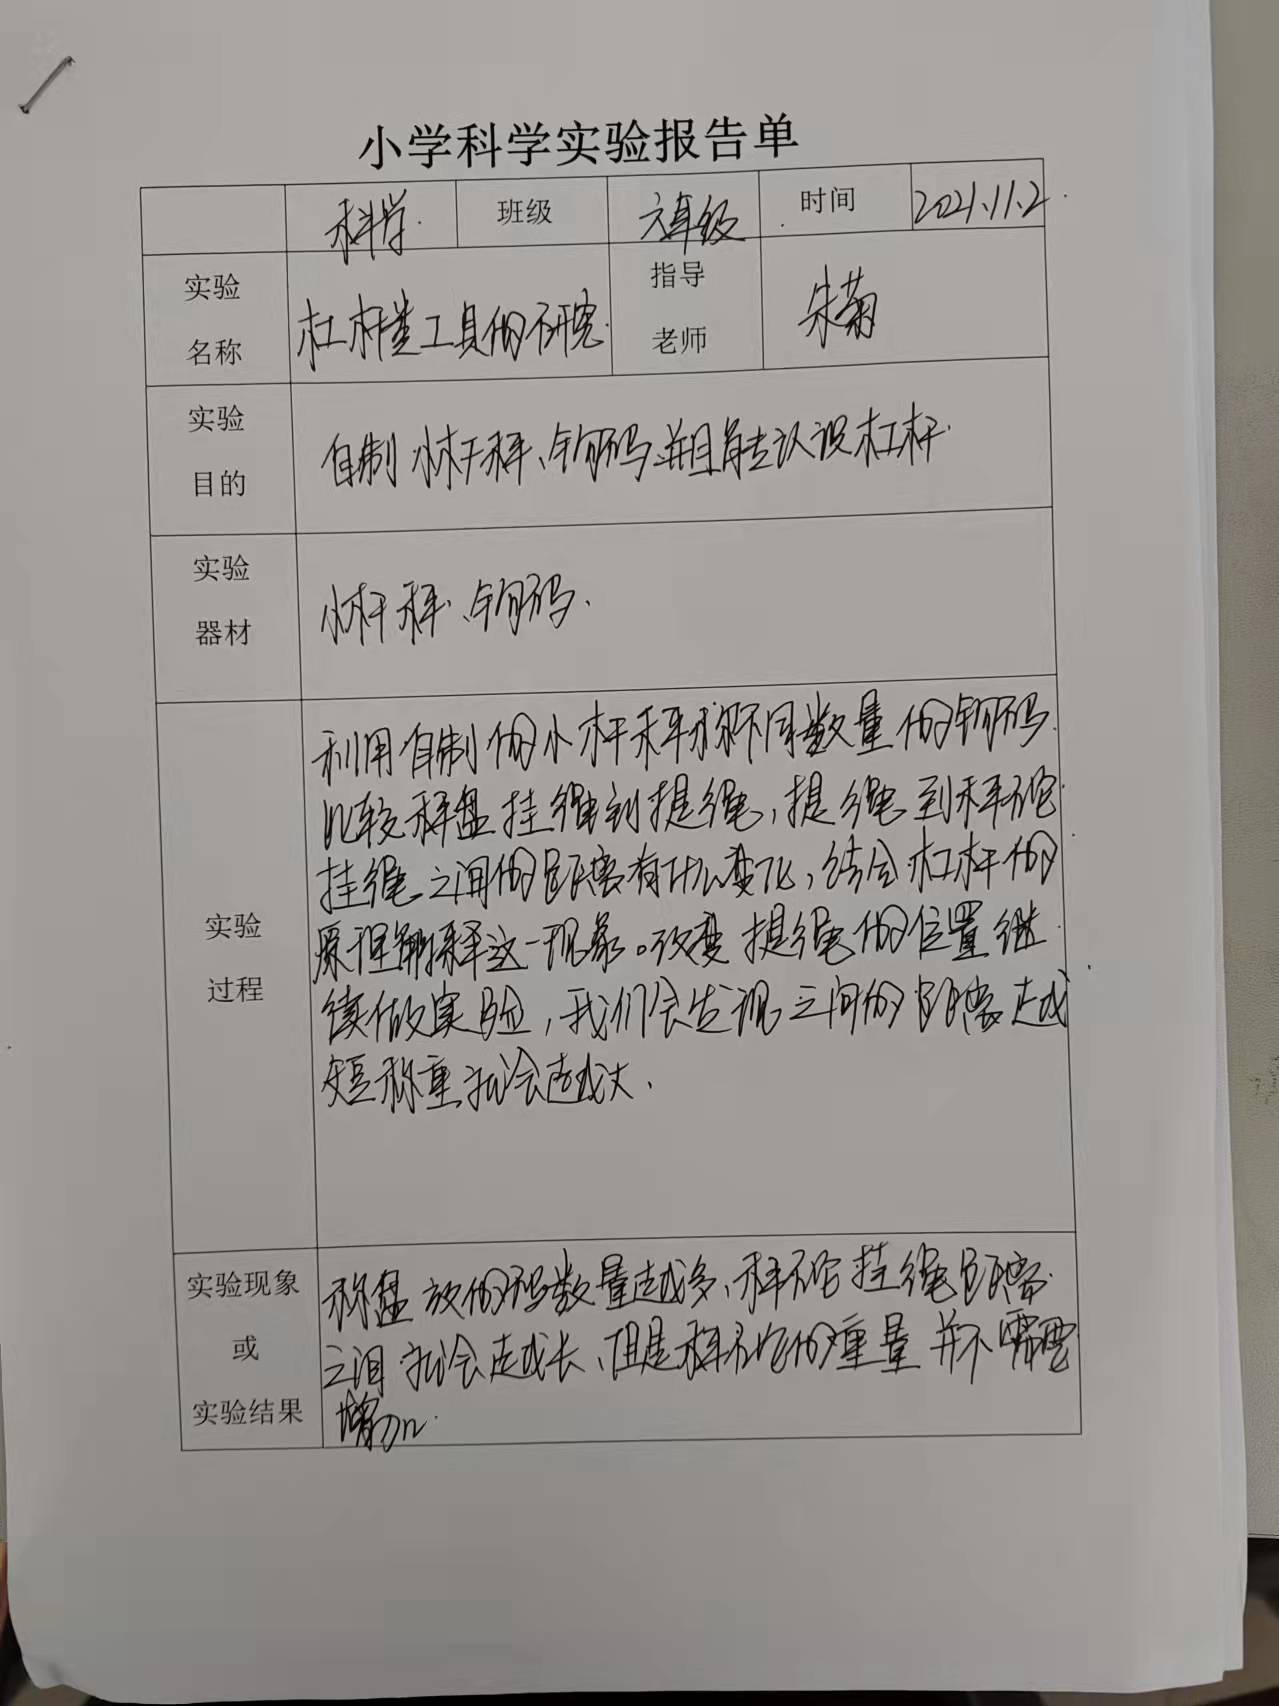 小学科学实验报告单
科学 班级 六年级 时间 2021.11.2
实验 名称 杠杆类工具的研究 指导 老师 朱菊
实验 目的 自制小杆秤、钩码并且能去认识杠杆
实验 器材 小杆秤、钩码.
实验
过程
利用自制的小杆秤称不同数量的钩码.
比较秤盘挂绳到提绳,提绳到秤砣
挂绳之间的距离有什么变化,结合杠杆的
原理解释这一现象。改变提绳的位置继
续做实验,我们会发现之间的距离越
短称重就会越大.
实验现象
或
实验结果
称盘放的码数量越多、秤砣挂绳距离
之间就会越长、但是秤砣的重量并不需要
增加.